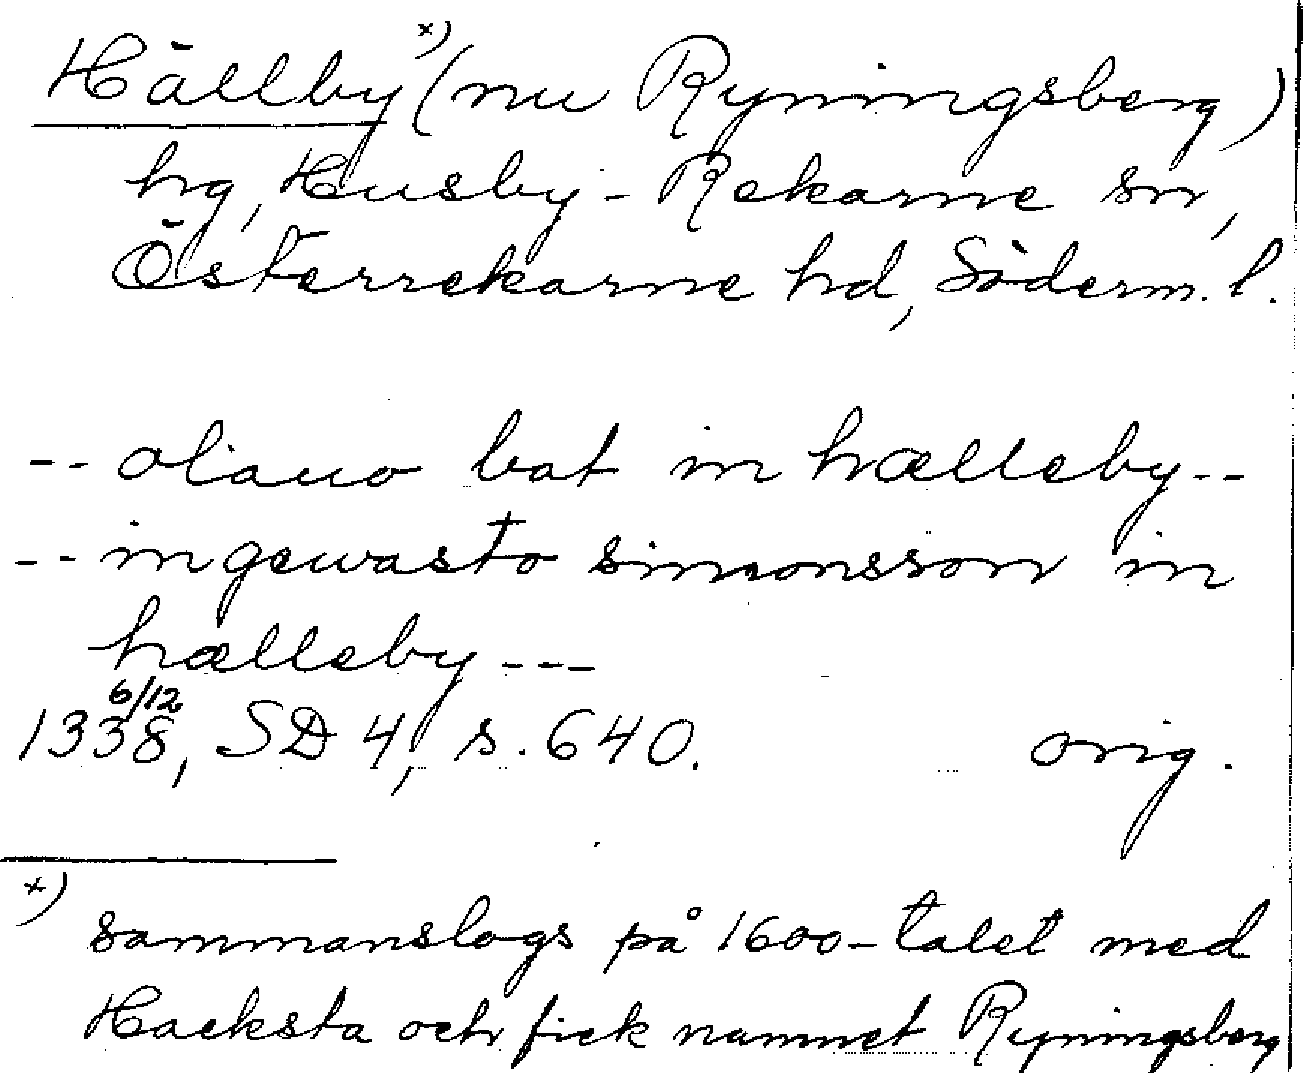 Hällby x) (nu Ryningsberg)
hg, Husby-Rekarne sn,
Österrekarne hd, Söderm. l.
-- olauo bat in hælleby--
-- ingewasto simonsson in
hælleby ---
1338 6/12, SD 4, s. 640. orig.
x)
sammanslogs på 1600-talet med
Hacksta och fick namnet Ryningsberg